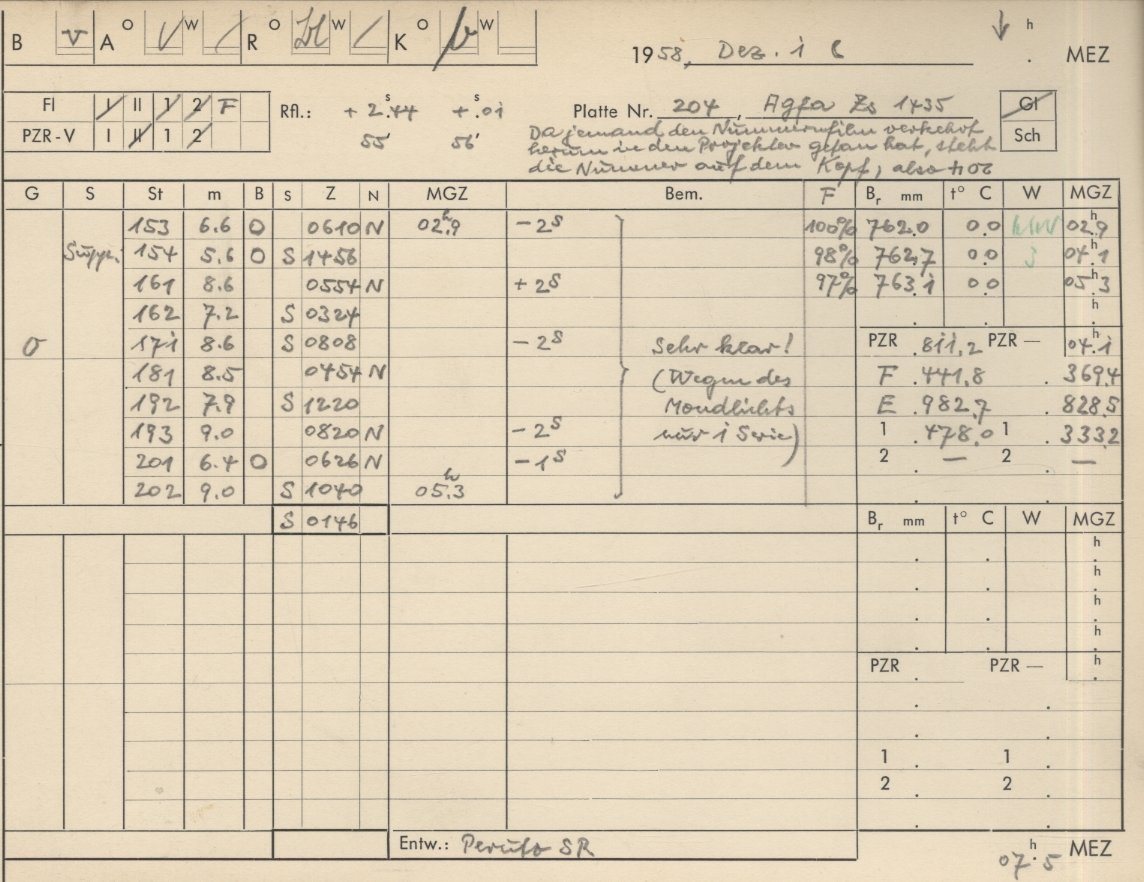 B v A O W R O W K O W
1958, Dez. 1 h MEZ
Fl I II 1 2 F
PZR-V I II 1 2
Rfl.: + 2.ˢ44 + .ˢ01
55 56
Platte Nr. 204, Agfa Zs 1435
Gl
Sch
Da jemand den Nummernfilm verkehrt
herum in den Projektor getan hat, steht
die Nummer auf dem Kopf, also
G S St m B S Z N MGZ Bem. F Bᵣ mm t° C W MGZ
153 6.6 O 0610 N 02ʰ.9 −2ˢ 100% 762.0 0.0 NNW 02ʰ.9
Suppl. 154 5.6 O S 1456 98% 762.7 0.0 3 04ʰ.1
161 8.6 0554 N +2ˢ 97% 763.1 0.0 05ʰ.3
162 7.2 S 0324 h
0 171 8.6 S 0808 −2ˢ Sehr klar! PZR .811,2 PZR — 04ʰ.1
181 8.5 0454 N (Wegen des F .441,8 .3694
192 7.9 S 1220 Mondlichts E .982,7 .8285
193 9.0 0820 N −2ˢ nur 1 Serie) 1 .478,0 1 .3332
201 6.4 O 0626 N −1ˢ 2 — 2 —
202 9.0 S 1040 05ʰ.3
S 0146 Bᵣ mm t° C W MGZ
h
h
h
h
PZR PZR — h
1 1
2 2
Entw.: Perufo SR 07ʰ.5 MEZ